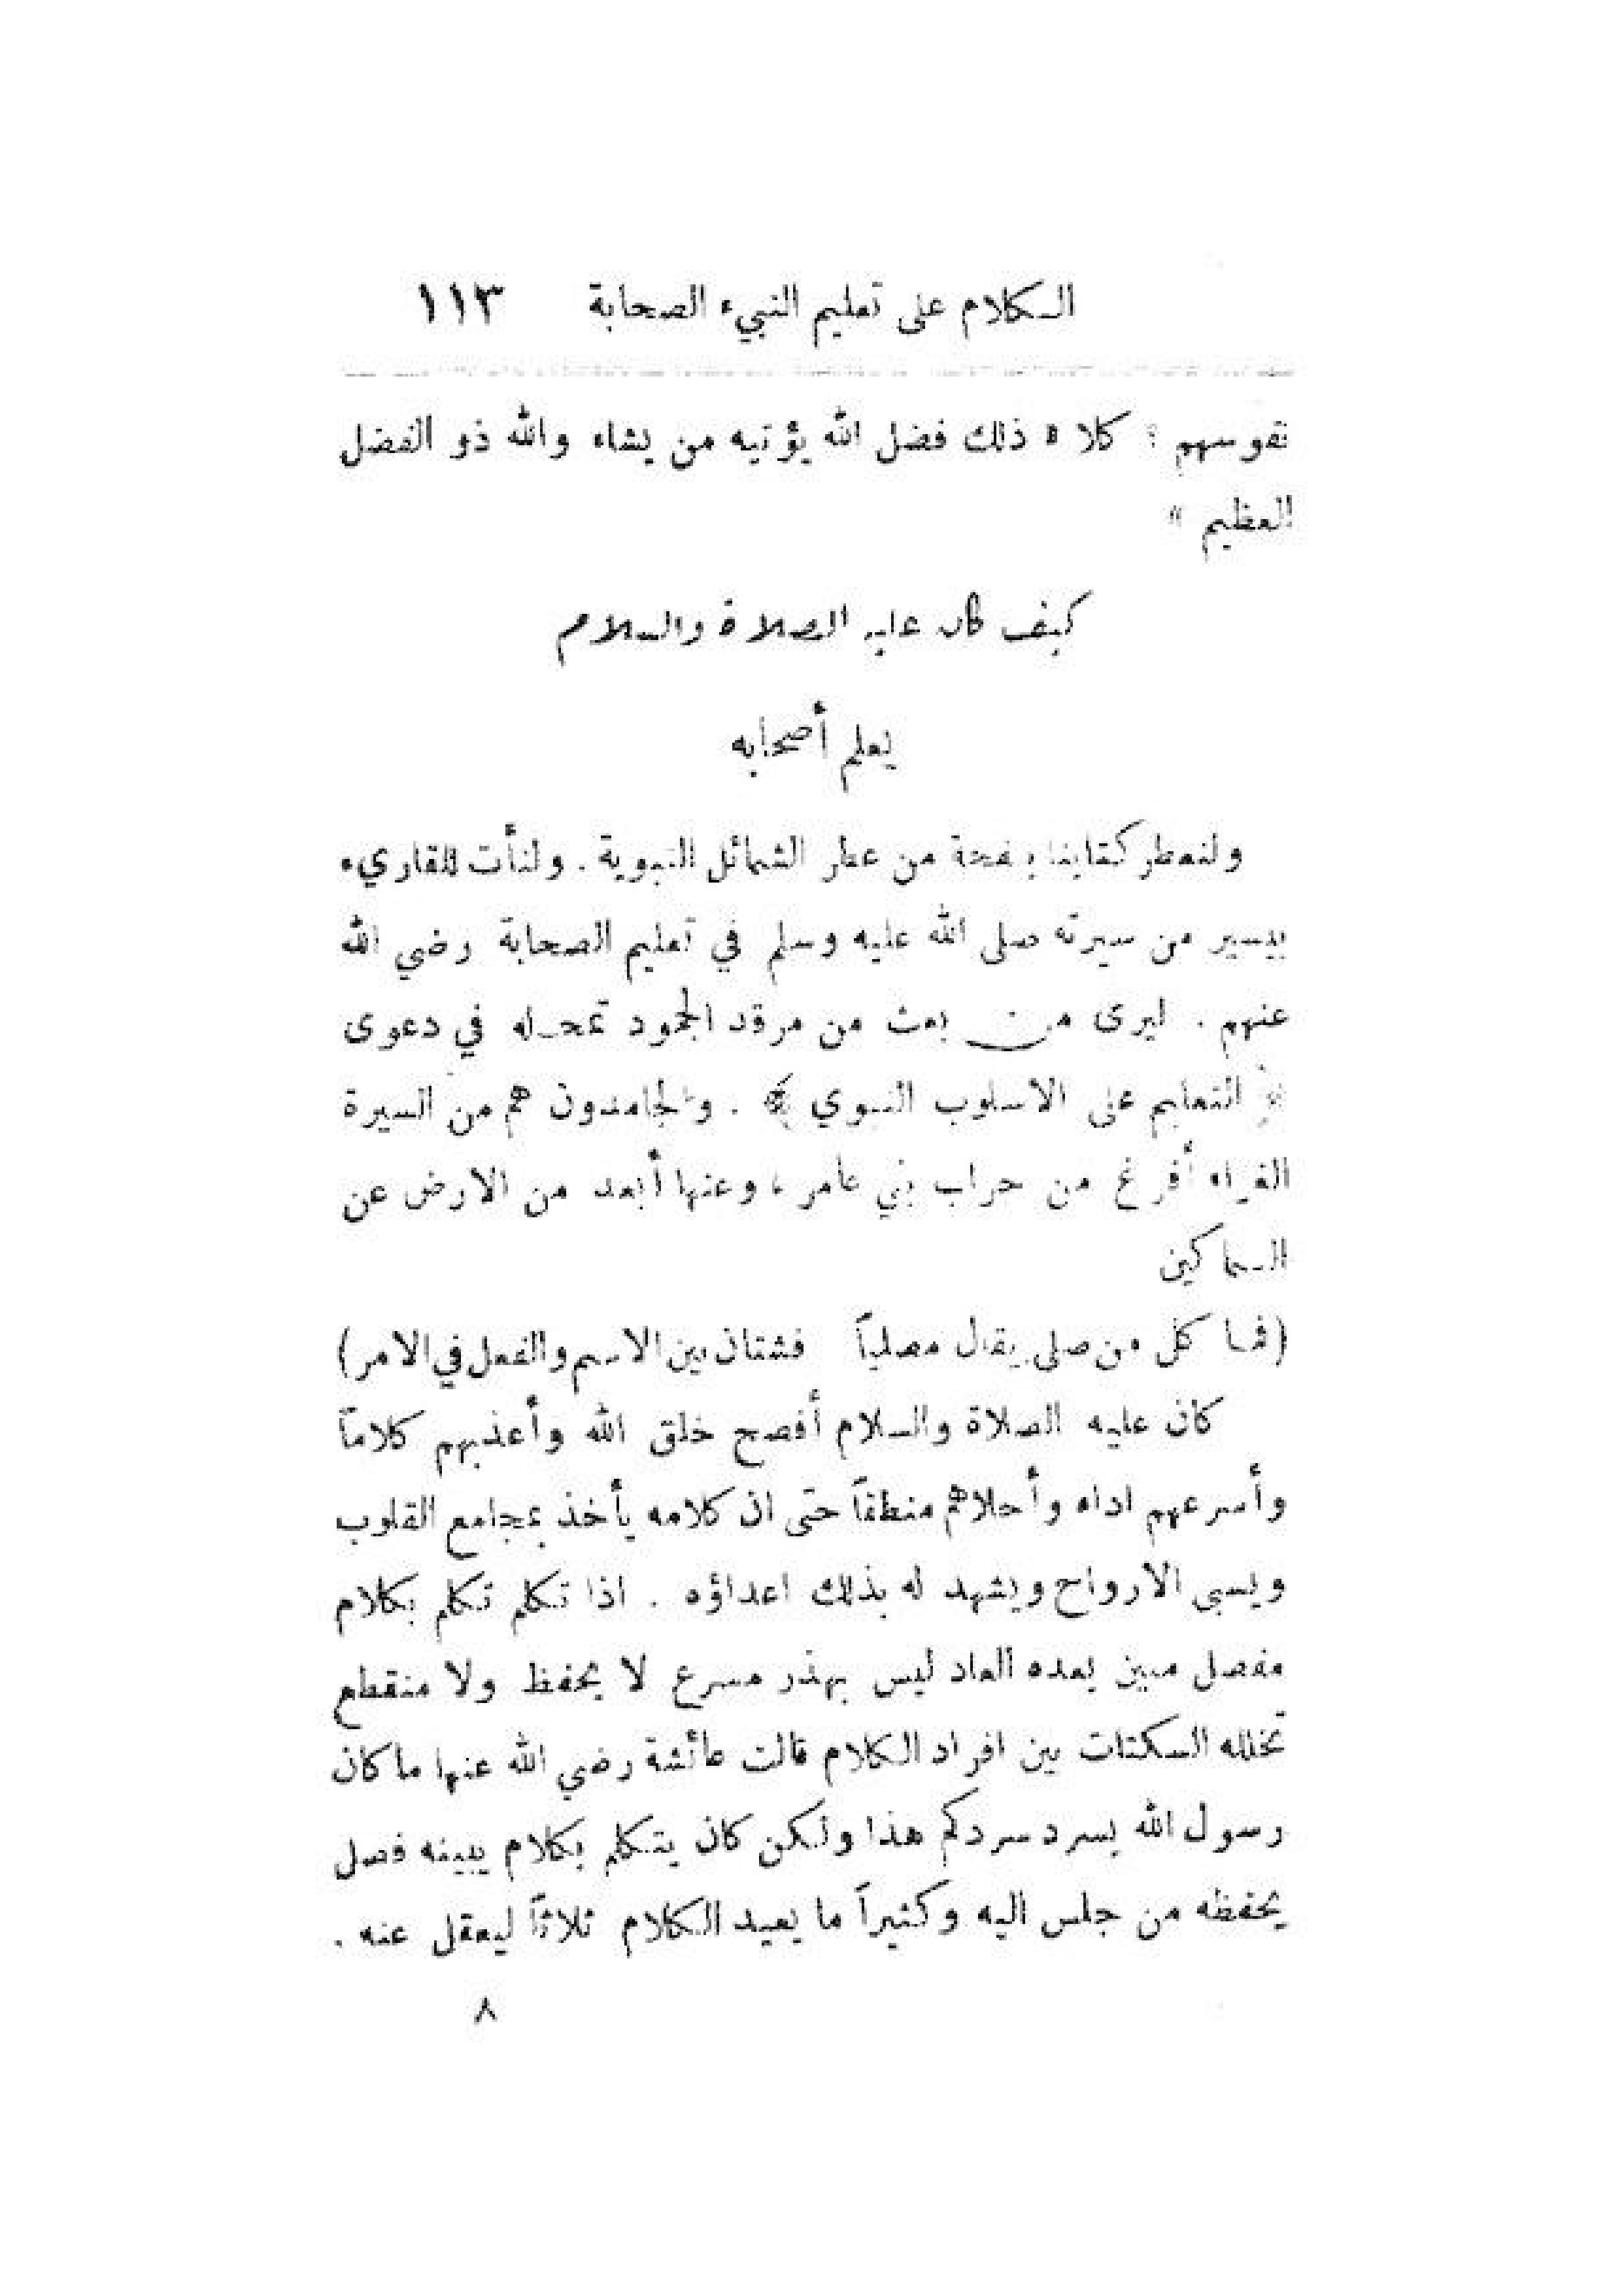 الكلام على تعليم النبيء الصحابة ١١٣
نفوسهم ؟ كلا « ذلك فضل الله يؤتيه من يشاء والله ذو الفضل
العظيم »
كيف كان عليه الصلاة والسلام
يعلم أصحابه
ولنعطر كتابنا بنفحة من عطر الشمائل النبوية . ولنأت للقاريء
بيسير من سيرته صلى الله عليه وسلم في تعليم الصحابة رضي الله
عنهم . ليرى من بعث من مرقد الجمود تمحله في دعوى
﴿ التعليم على الاسلوب النبوي ﴾ . والجامدون هم من السيرة
الغراء أفرغ من جراب بني عامر ، وعنها أبعد من الارض عن
السماكين
(فما كل من صلى يقال مصلياً فشتان بين الاسم والفعل في الامر)
كان عليه الصلاة والسلام أفصح خلق الله وأعذبهم كلاماً
وأسرعهم اداء وأحلاهم منطقاً حتى ان كلامه يأخذ بمجامع القلوب
ويسبى الارواح ويشهد له بذلك اعداؤه . اذا تكلم تكلم بكلام
مفصل مبين يعده العاد ليس بهذر مسرع لا يحفظ ولا منقطع
تخلله السكتات بين افراد الكلام قالت عائشة رضي الله عنها ما كان
رسول الله يسرد سردكم هذا ولكن كان يتكلم بكلام يبينه فصل
يحفظه من جلس اليه وكثيراً ما يعيد الكلام ثلاثاً ليعقل عنه .
٨